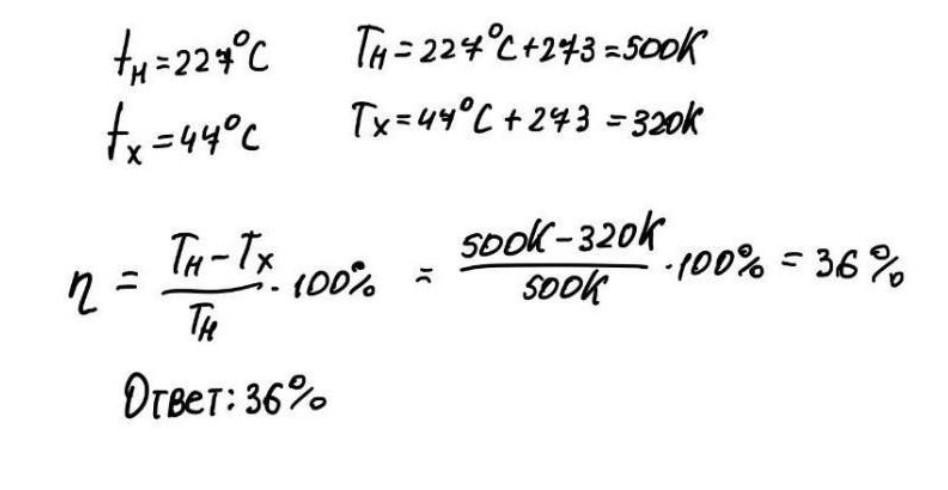 tн=227°C Tн=227°C+273=500K
tx=47°C Tx=47°C+273=320K
η = (Tн-Tx)/Tн · 100% = (500K-320K)/500K · 100% = 36%
Ответ: 36%